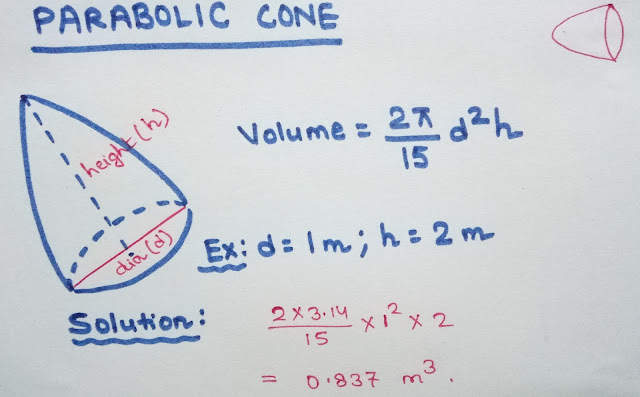 PARABOLIC CONE
height (h)
dia (d)
Volume = 2π/15 d²h
Ex: d = 1m ; h = 2m
Solution: 2 × 3.14/15 × 1² × 2
= 0.837 m³.